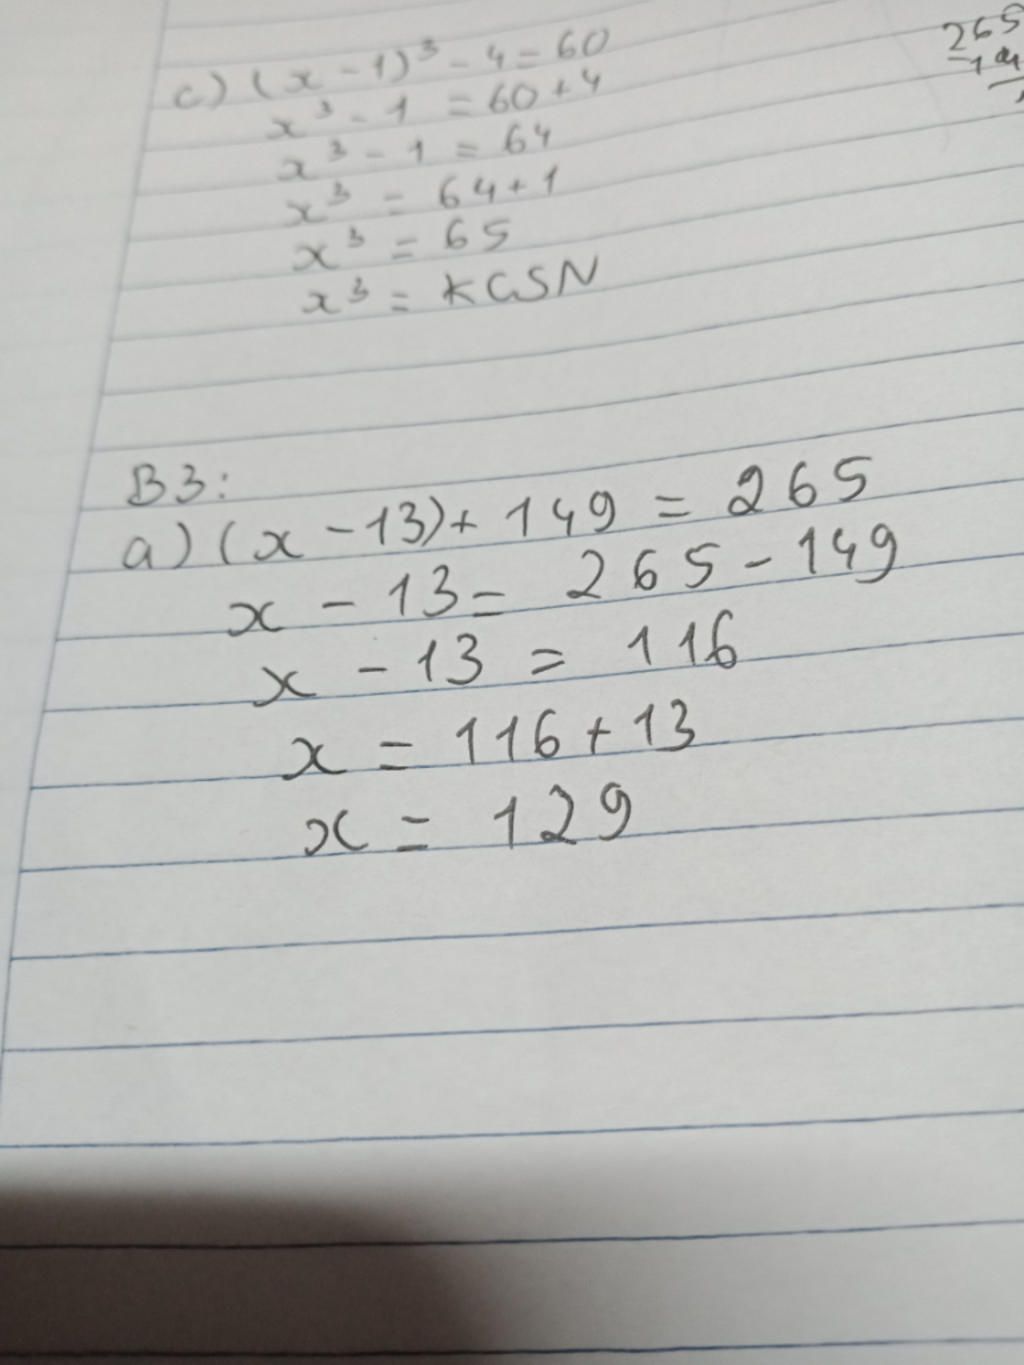 c) (x - 1)³ - 4 = 60
x³ - 1 = 60 + 4
x³ - 1 = 64
x³ = 64 + 1
x³ = 65
x³ = KGSN
265
B3:
a) (x - 13) + 149 = 265
x - 13 = 265 - 149
x - 13 = 116
x = 116 + 13
x = 129